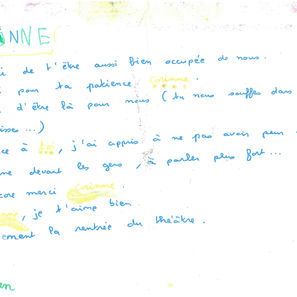 INNE
i de t'être aussi bien occupée de nous.
i pour ta patience Corinne.
d'être là pour nous (tu nous souffles dans
isses...)
ce à toi, j'ai appris à ne pas avoir peur
me devant les gens, à parler plus fort...
core merci Corinne.
, je t'aime bien.
ement la rentrée du théâtre.
en